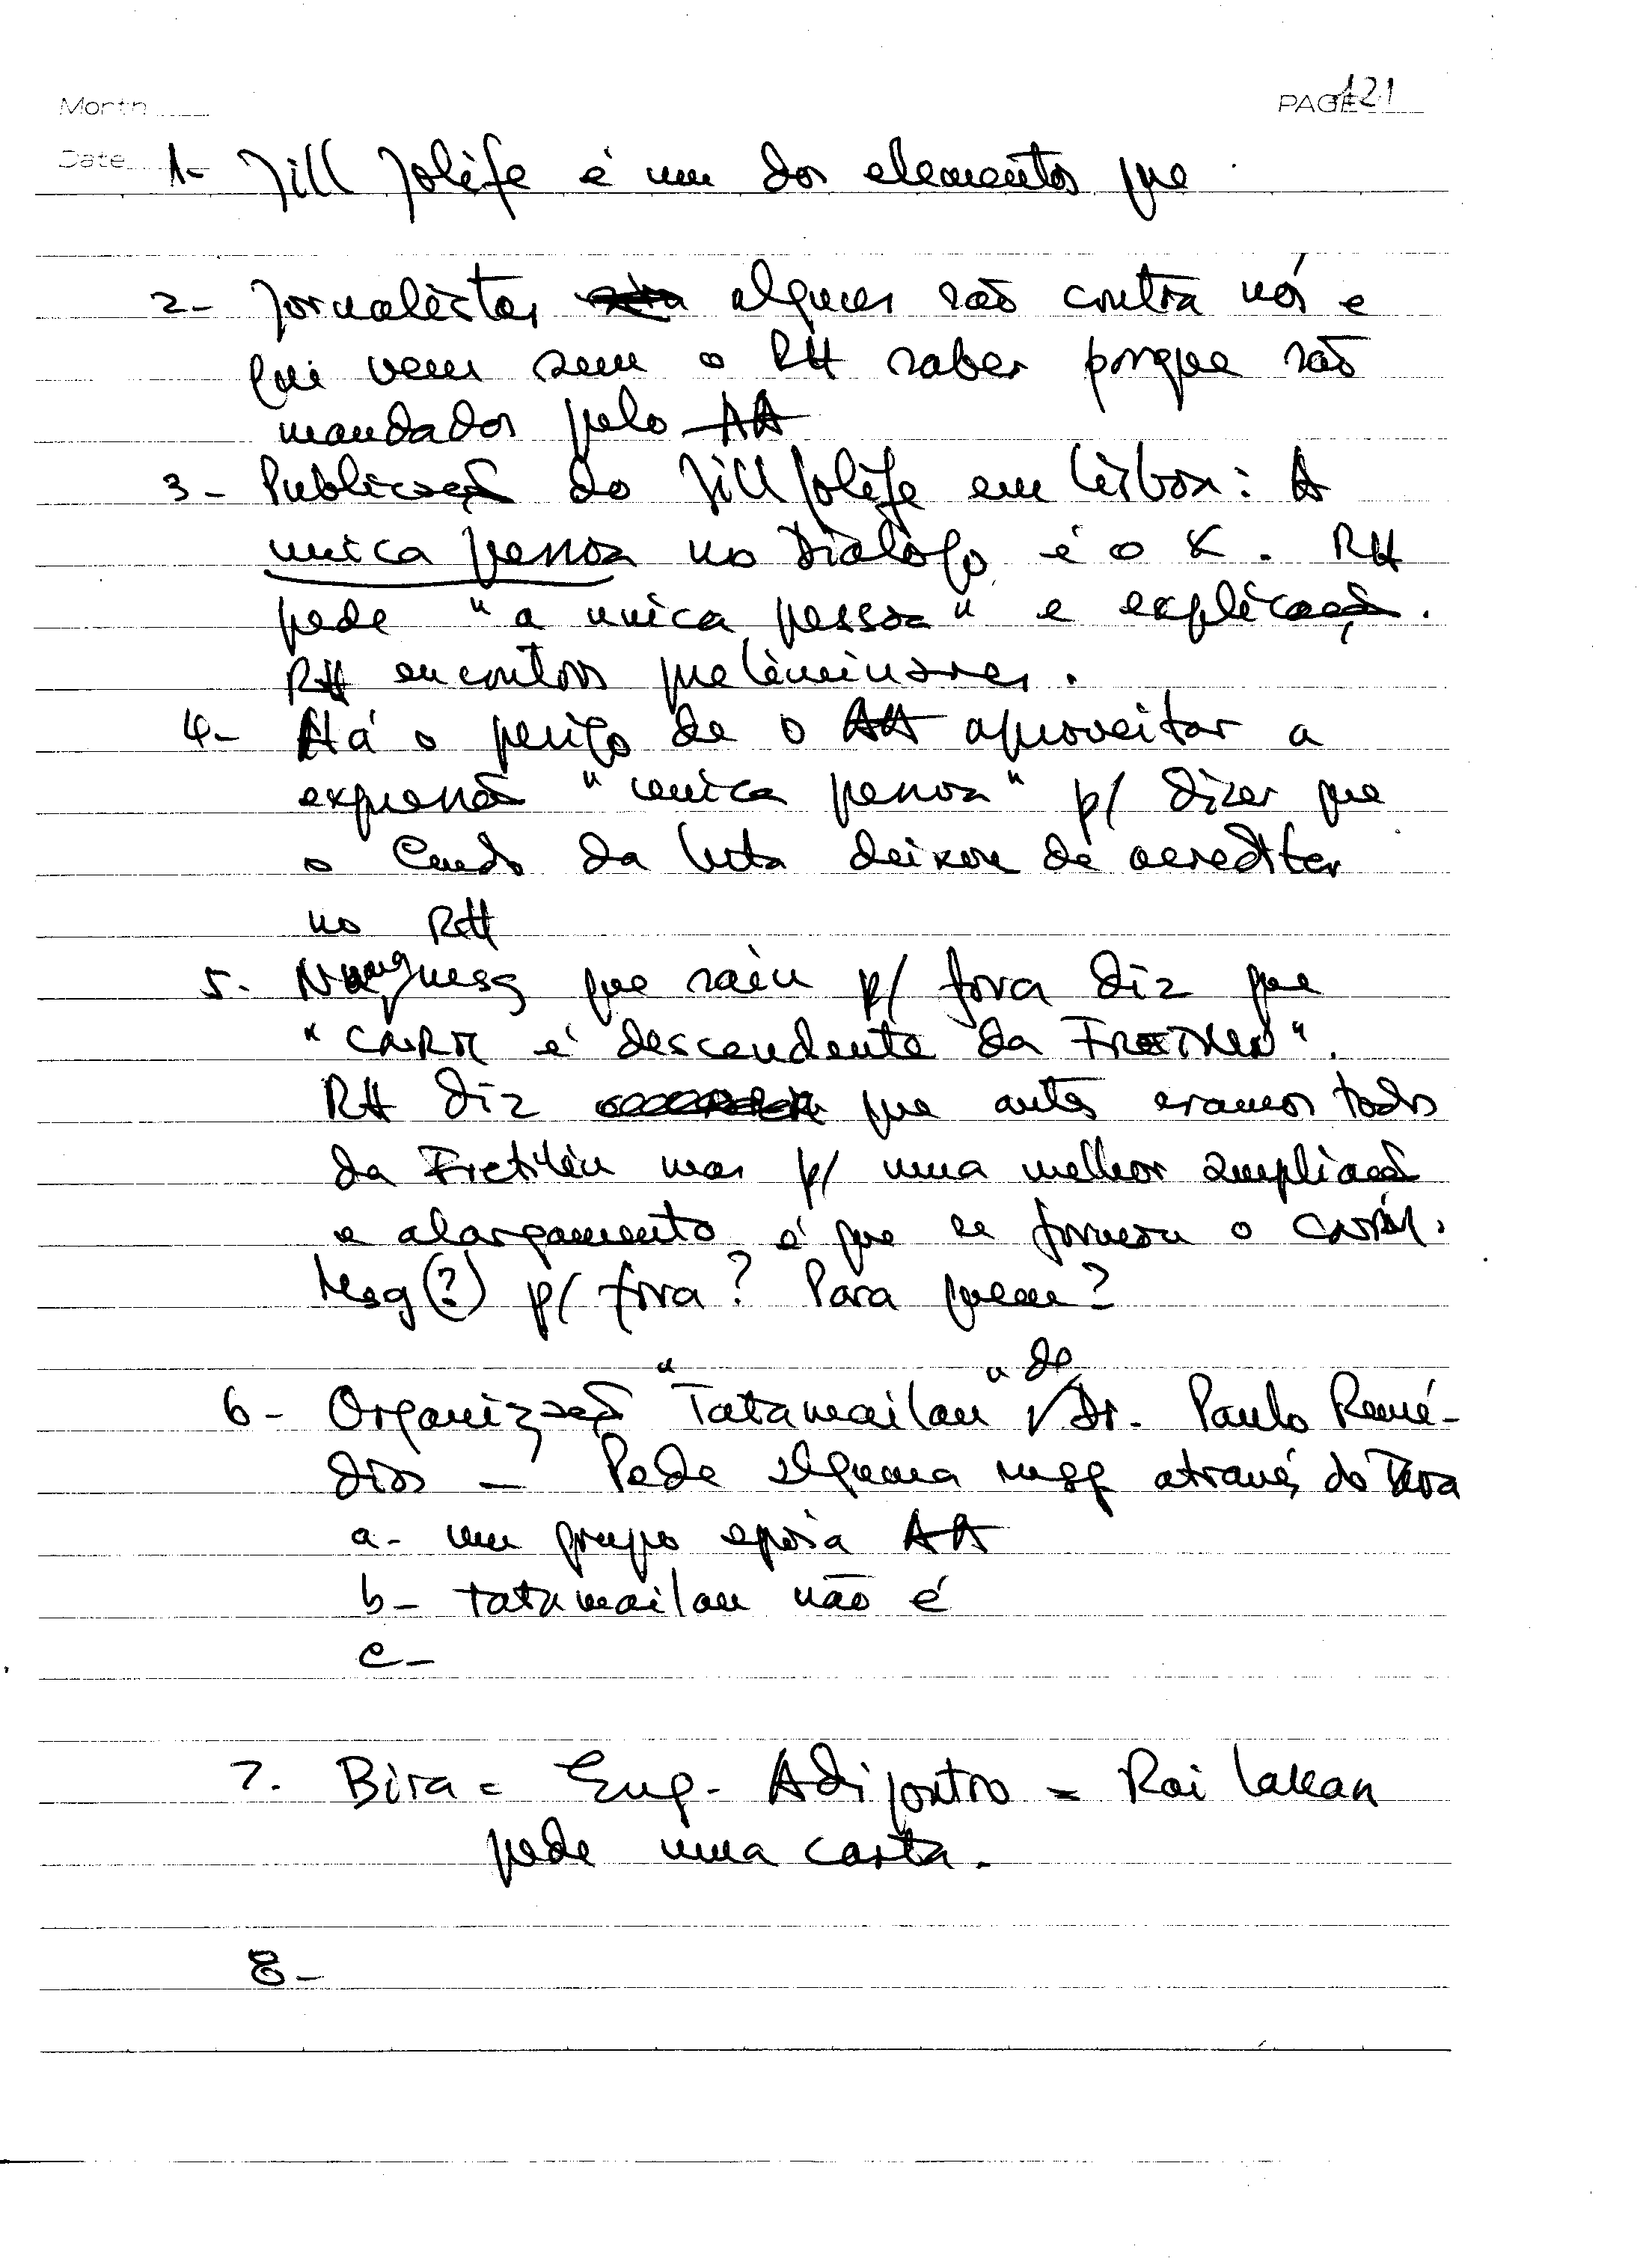 Month
PAGE 121
Date
1- Jill Jolife é um dos elementos que
2- Jornalistas alguns são contra nós e
qui vem sem o RH saber porque são
mandados pelo AA
3- Publicação do Jill Jolife em Lisboa: A
unica pessoa no Diálogo é o X. RH
pede "a unica pessoa" e explicação.
RH encontros preliminares.
4- Há o perigo de o AA aproveitar a
expressão "unica pessoa" p/ dizer que
o Cmdo da luta deixou de acreditar
no RH
5- Numa msg que saiu p/ fora diz que
"CNRM é descendente da Fretilin".
RH diz que antes eramos todos
da Fretilin mas p/ uma melhor ampliação
e alargamento é que se formou o CNRM.
Msg(?) p/ fora? Para quem?
6- Organização "Tatamailau" de Dr. Paulo Remé-
dios - Pede alguma msg através do
a- um grupo apoia AA
b- tatamailau não é
c-
7. Bira = Eng. = Rai Lakan
pede uma carta.
8-